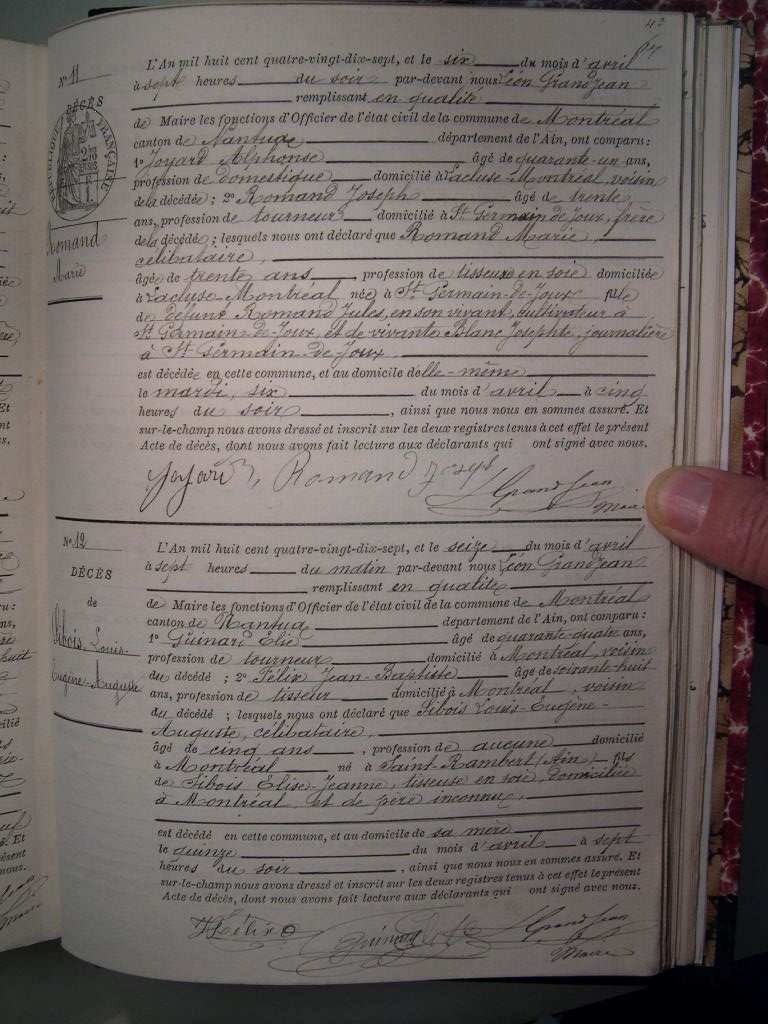 43
N° 11
DÉCÈS
RÉPUBLIQUE FRANÇAISE
Romand
Marie
L'An mil huit cent quatre-vingt-dix-sept, et le six du mois d'avril
à sept heures du soir par-devant nous Léon Grandjean
remplissant en qualité
de Maire les fonctions d'Officier de l'état civil de la commune de Montréal
canton de Nantua département de l'Ain, ont comparu:
1° Joyard Alphonse âgé de quarante-un ans,
profession de domestique domicilié à Lacluse-Montréal, voisin
de la décédée; 2° Romand Joseph âgé de trente
ans, profession de tourneur domicilié à St Germain de Joux, frère
de la décédée; lesquels nous ont déclaré que Romand Marie,
célibataire,
âgée de trente ans, profession de tisseuse en soie domiciliée
à Lacluse Montréal née à St Germain-de-Joux fille
de défunt Romand Jules, en son vivant, cultivateur à
St Germain-de-Joux, et de vivante Blanc Josephte, journalière
à St Germain-de-Joux.
est décédée en cette commune, et au domicile d'elle-même
le mardi, six du mois d'avril à cinq
heures du soir, ainsi que nous nous en sommes assuré. Et
sur-le-champ nous avons dressé et inscrit sur les deux registres tenus à cet effet le présent
Acte de décès, dont nous avons fait lecture aux déclarants qui ont signé avec nous.
Joyard, Romand Josep
Grandjean
Maire
N° 12
DÉCÈS
de
Sibois Louis-
Eugène-Auguste
L'An mil huit cent quatre-vingt-dix-sept, et le seize du mois d'avril
à sept heures du matin par-devant nous Léon Grandjean
remplissant en qualité
de Maire les fonctions d'Officier de l'état civil de la commune de Montréal
canton de Nantua département de l'Ain, ont comparu:
1° Guinard Elie âgé de quarante-quatre ans,
profession de tourneur domicilié à Montréal, voisin
du décédé; 2° Félix Jean-Baptiste âgé de soixante-huit
ans, profession de tisseur domicilié à Montréal, voisin
du décédé; lesquels nous ont déclaré que Sibois Louis-Eugène-
Auguste, célibataire,
âgé de cinq ans, profession de aucune domicilié
à Montréal né à Saint-Rambert (Ain) fils
de Sibois Elise-Jeanne, tisseuse en soie, domiciliée
à Montréal, et de père inconnu,
est décédé en cette commune, et au domicile de sa mère
le quinze du mois d'avril à sept
heures du soir, ainsi que nous nous en sommes assuré. Et
sur-le-champ nous avons dressé et inscrit sur les deux registres tenus à cet effet le présent
Acte de décès, dont nous avons fait lecture aux déclarants qui ont signé avec nous.
Félix Guinard Grandjean
Maire